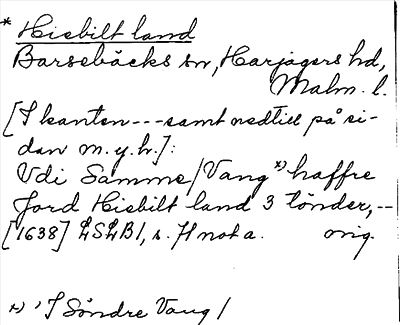 * Hisbilt land
Barsebäcks sn, Harjagers hd,
Malm. l.
[I kanten --- samt nedtill på si-
dan m. y. h.]:
Vdi Samme / Vang *) haffre
Jord Hisbilt land 3 tönder, --
[1638] LSLB1, s. 71 not a. orig.
*) ' I Söndre Vang /